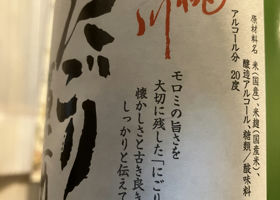 原材料名 米(国産)、米麹(国産米)、
醸造アルコール、糖類/酸味料
アルコール分 20度
桃川
にごり
モロミの旨さを
大切に残した「にごり
懐かしさと古き良き
しっかりと伝えて